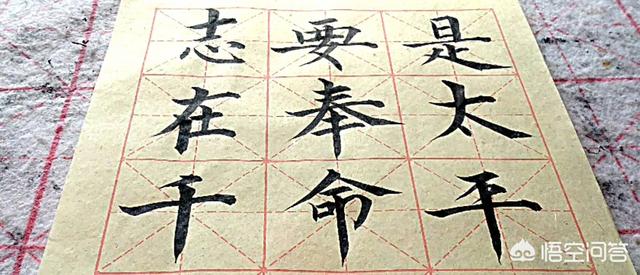 是太平
要奉命
志在千
悟空问答